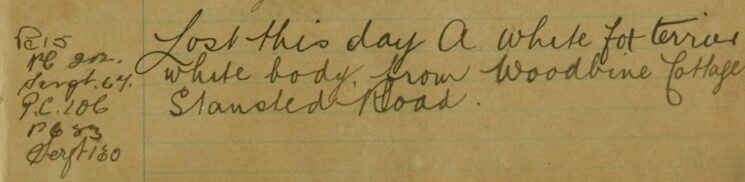 PC 15
PC 202.
Sergt. 64.
P.C. 106
PC 83
Sergt 130
Lost this day A white fox terrier
white body. from Woodbine Cottage
Stansted Road.